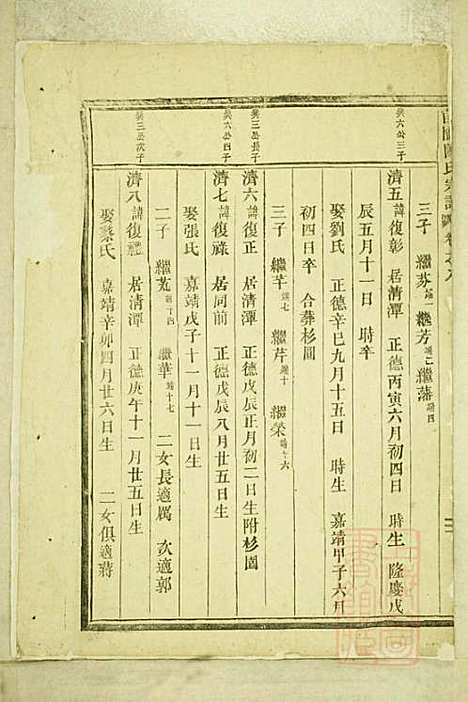 陳氏宗譜
三子 繼芬端一 繼芳端二 繼藩端四
癸六公三子
濟五諱復彰 居清潭 正德丙寅六月初四日 時生 隆慶戊
辰五月十一日 時卒
娶劉氏 正德辛巳九月十五日 時生 嘉靖甲子六月
初四日卒 合葬杉園
三子 繼芊端七 繼芹端十 繼榮端十六
癸三公長子
濟六諱復正 居清潭 正德戊辰正月初二日生附杉園
癸六公四子
濟七諱復祿 居同前 正德戊辰八月廿五日生
娶張氏 嘉靖戊子十一月十一日生
二子 繼芫端十四 繼華端十七 二女長適厲 次適郭
癸三公次子
濟八諱復禮 居清潭 正德庚午十一月廿五日生
娶蔡氏 嘉靖辛卯四月廿六日生 二女俱適蔣